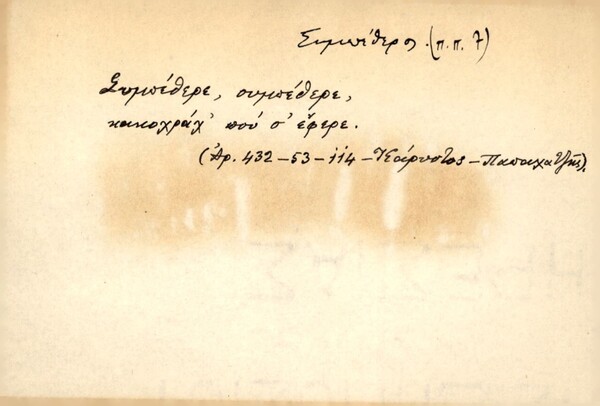 Συμπέθερος. (π.π. 7)
Συμπέθερε, συμπέθερε,
κακοχράχ' πού σ' ἔφερε.
(Ἀρ. 432-53-114-Κάρυστος-Παπαχατζῆς).